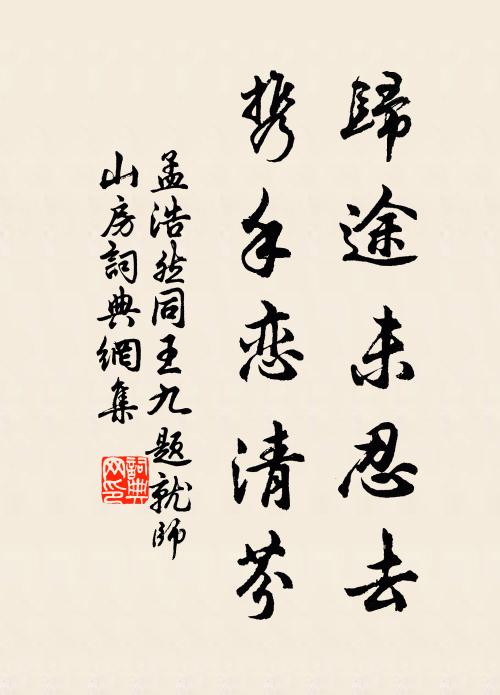 歸途未忍去
携手恋清芬
孟浩然同王九題就師
山房詞典網集
詞典网印